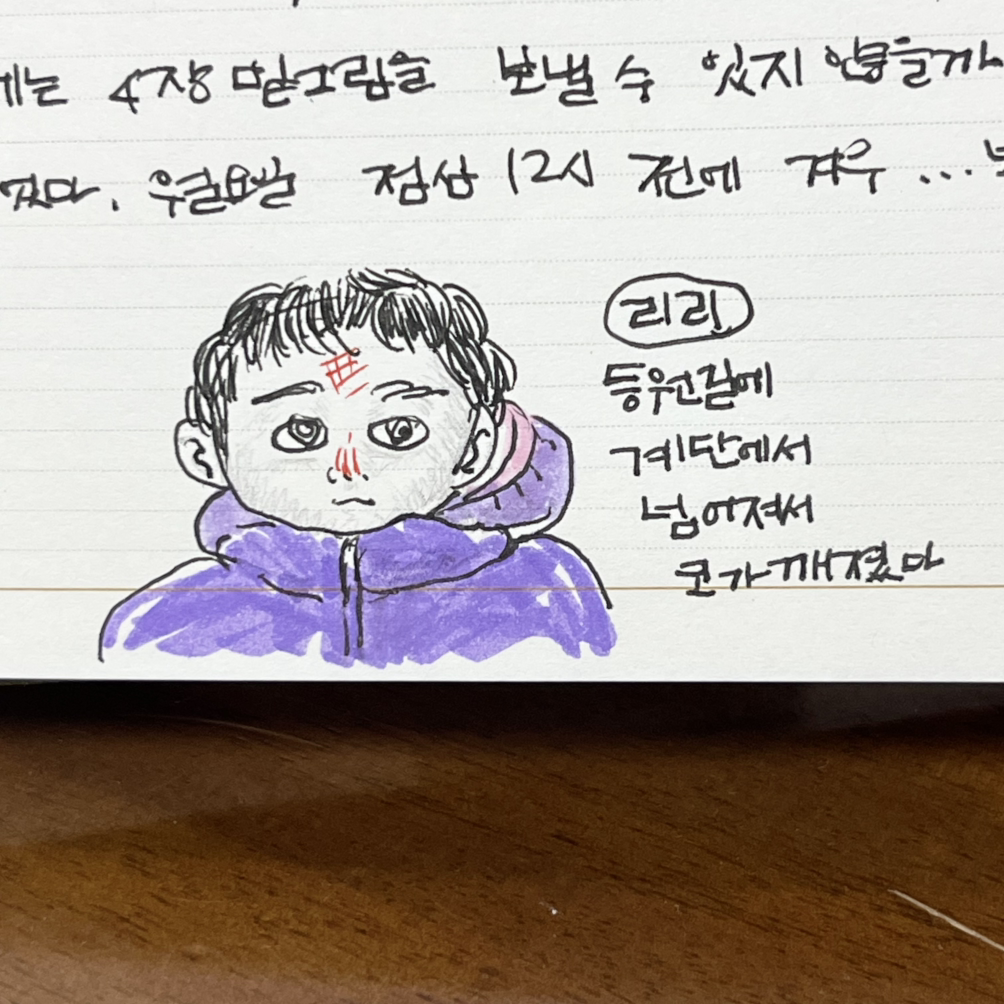 게는 4장 밑그림을 보낼 수 있지 않을까
었다. 월요일 점심 12시 전에 겨우...
리리
등원길에
계단에서
넘어져서
코가 깨졌다